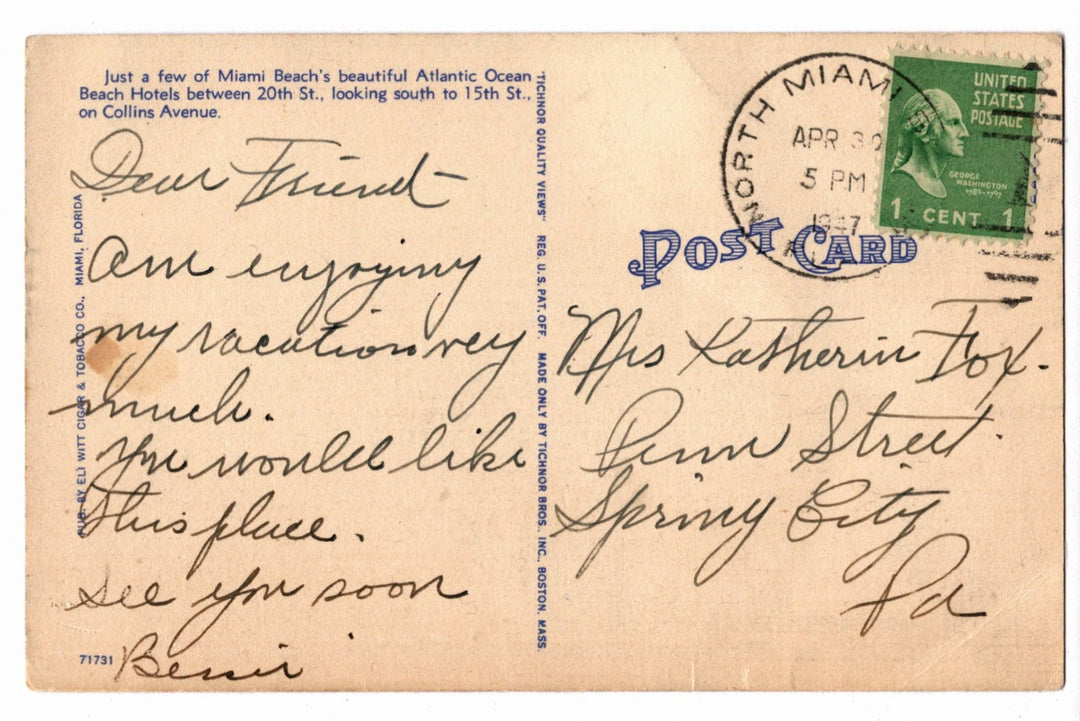 Just a few of Miami Beach's beautiful Atlantic Ocean
Beach Hotels between 20th St., looking south to 15th St.,
on Collins Avenue.
Dear Friend
Am enjoying
my vacation very
much.
You would like
this place.
See you soon
Bessie
71731
PUB. BY ELI WITT CIGAR & TOBACCO CO., MIAMI, FLORIDA
"TICHNOR QUALITY VIEWS" REG. U.S. PAT. OFF. MADE ONLY BY TICHNOR BROS. INC., BOSTON, MASS.
NORTH MIAMI
APR 30
5 PM
1947
UNITED
STATES
POSTAGE
GEORGE
WASHINGTON
1789-1797
1 CENT 1
POST CARD
Mrs Katherin Fox.
Penn Street.
Spring City
Pa